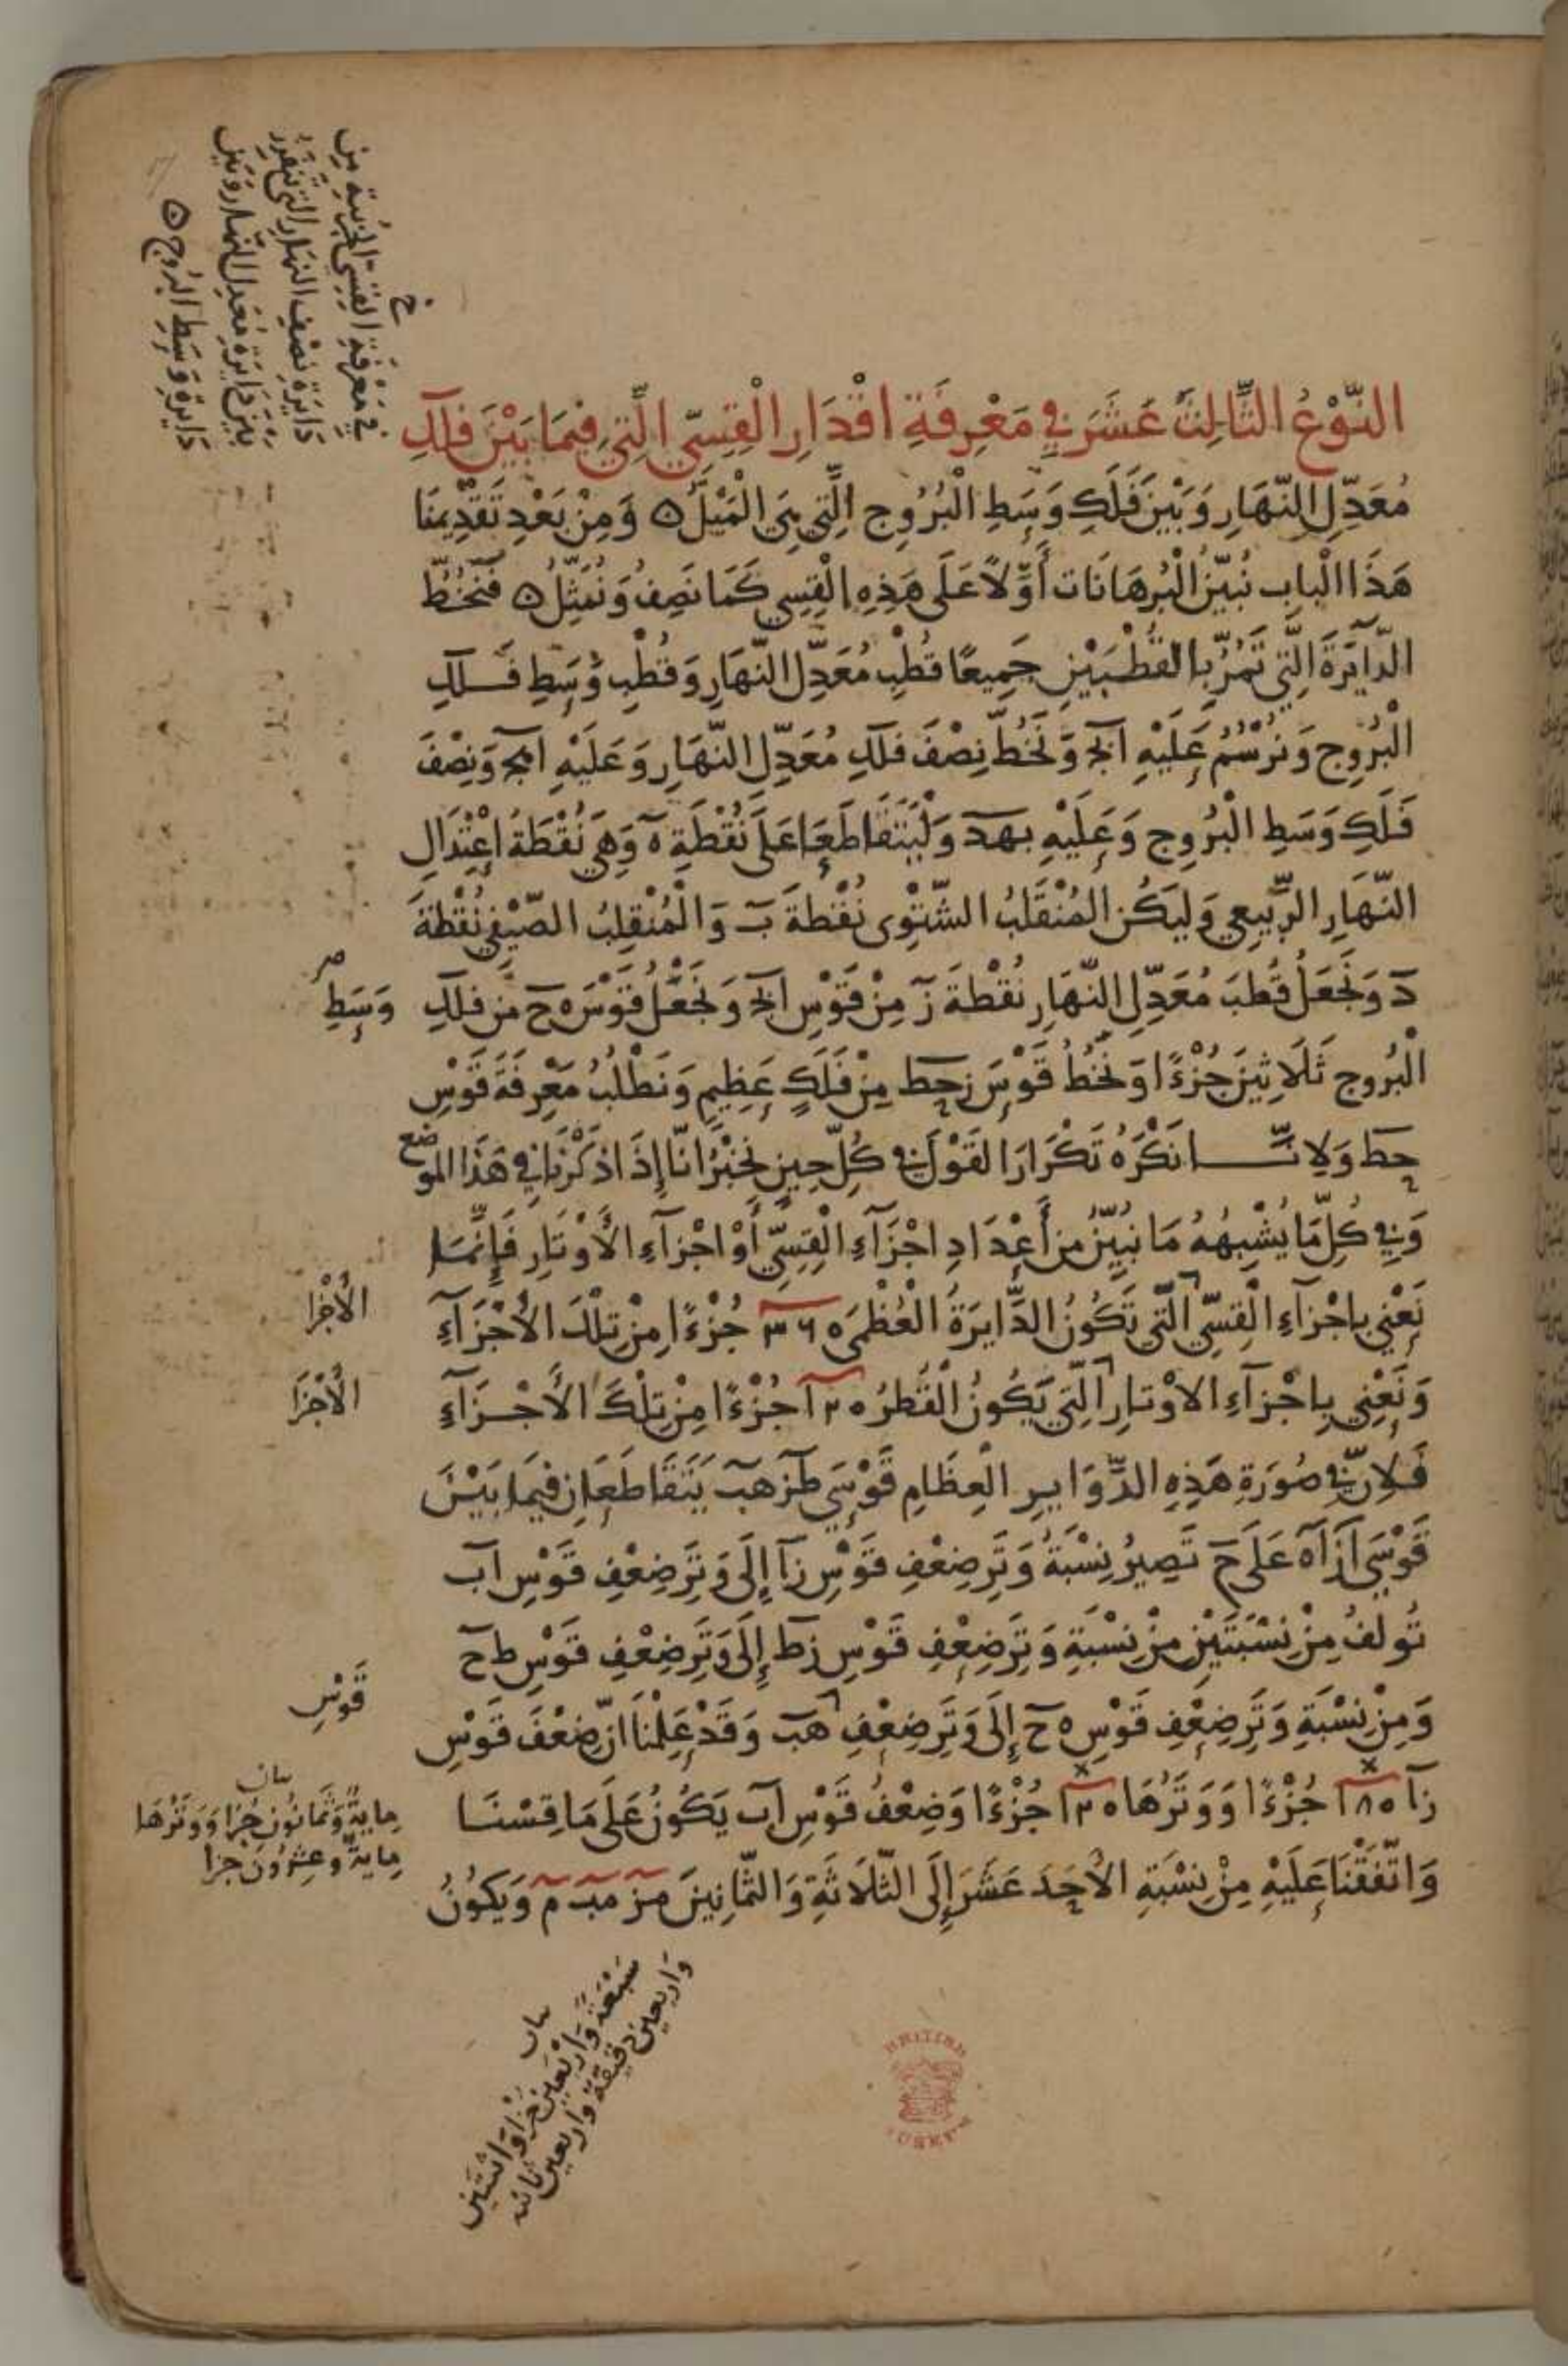 خ
في مَعْرِفَةِ القِسِيّ الجُزئية مِن
دَايرَةِ نِصْفِ النهَارِ التي
بَيْنَ دَايرَةِ مُعَدِل النّهار وَبَين
دَايرةِ وَسَطِ البُروج ه
النَّوْعُ الثَّالِثَ عَشَرَ في مَعْرِفَةِ اقْدَارِ الْقِسِيّ الَّتِي فِيمَا بَيْنَ فلكِ
مُعَدِّلِ النَّهَارِ وَبَيْنَ فَلَكِ وَسَطِ الْبُرُوجِ الَّتِي هِيَ الْمَيْلُ ه وَمِنْ بَعْدِ تَقْدِيمنَا
هَذَا الْبابِ نُبَيّنُ الْبُرهَانَات أَوّلاً عَلَى هَذِهِ الْقِسِي كَمَا نَصِفُ وَنُمَثِّلُ ه فَنَخُطُّ
الدّآيَرَةَ الَّتِي تَمُرُّ بِالقُطْبَيْنِ جَمِيعًا قُطْبِ مُعَدِّلِ النّهَارِ وَقُطْبِ وَسَطِ فَلكِ
الْبُرُوجِ وَنَرْسُمُ عَلَيْهِ ابجد وَنَخُطُّ نِصْفَ فلكِ مُعَدِّلِ النَّهَارِ وَعَلَيْهِ اهج وَنِصْفَ
فَلَكِ وَسَطِ الْبُرُوجِ وَعَلَيْهِ بهد وَلْيَتَقَاطَعَا عَلَى نُقْطَةِ ه وَهِيَ نُقْطَةُ اعْتِدَالِ
النَّهَارِ الرَّبِيعِي وَليَكُن المُنْقَلَبُ الشّتْوِى نُقْطَةَ ب وَالْمُنْقلِبُ الصّيْفِي نُقْطَةَ
د وَنَجْعَلُ قُطبَ مُعَدِّلِ النَّهَارِ نُقْطَةَ ز مِنْ قَوْسِ ابج وَنَجْعَلُ قَوْسَ ه ح مِن فلكِ
وَسَطِ صح
الْبُروجِ ثَلَاثِينَ جُزْءًا وَنَخُطُّ قَوْسَ زحط مِنْ فَلَكٍ عَظِيمٍ وَنَطْلُبُ مَعْرِفَةَ قَوْسِ
حط وَلاِنّا نَكْرَهُ تَكْرَارَ القَوْلِ في كُلِّ حِينٍ نُخْبِرُ انّا إِذَا ذَكَرْنَا في هَذَا الموضع
وَفِي كُلِّ مَا يُشْبِهُهُ مَا نُبَيّنُ مِن أَعْدَادِ اجْزَآءِ الْقِسِيّ أَوْ اجْزآءِ الأَوْتَارِ فَإِنَّمَا
نَعْنِي باجْزآءِ الْقِسِيّ الّتِي تَكُونُ الدَّايرَةُ الْعُظْمَى ٣٦٠ جُزْءًا مِنْ تِلْكَ الأَجْزَآءِ
الأَجْزا
وَنَعْنِي بِاجْزآءِ الاوْتارِ الَّتِي يَكُونُ الْقُطرُ ١٢٠ جُزْءًا مِنْ تِلْكَ الأَجْزَآءِ
الأَجْزَا
فَلاِنّ في صُورَةِ هَذِهِ الدَّوَايرِ الْعِظَامِ قَوْسَي طز هب يَتَقَاطَعَانِ فِيمَا بَيْنَ
قَوْسَي از اه عَلَى ح تَصِيرُ نِسْبَةُ وَتَرِ ضِعْفِ قَوْسِ زا إِلَى وَتَرِ ضِعْفِ قَوْسِ اب
تُولفُ مِنْ نِسْبَتَيْنِ مِنْ نِسْبَةِ وَتَرِ ضِعْفِ قَوْسِ زط إِلَى وَتَرِ ضِعْفِ قَوْسِ طح
وَمِنْ نِسْبَةِ وَتَرِ ضِعْفِ قَوْسِ ه ح إِلَى وَتَرِ ضِعْفِ هب وَقَدْ عَلِمْنَا انّ ضِعْفَ قَوْسِ
قَوْسِ
زا ١٨٠ جُزْءًا وَوَتَرُهَا ١٢٠ جُزْءًا وَضِعْفُ قَوْسِ اب يَكُونُ عَلَى مَا قِسْنَا
بيان
مِايةٌ وَثَمَانُون جُزا وَوَتَرُهَا
مِايةٌ وعِشرُونَ جزا
وَاتّفَقْنَا عَلَيْهِ مِنْ نِسْبَةِ الأَحِدَ عَشَرَ إِلَى الثَّلَاثَةِ وَالثّمَانِينَ مز مب م وَيَكُونُ
بيان
سَبْعَةً وَارْبَعِينَ جُزْا وَاثنَتَين
وَاربعين دقيقة وَاربعين ثانية
BRITISH
MUSEUM